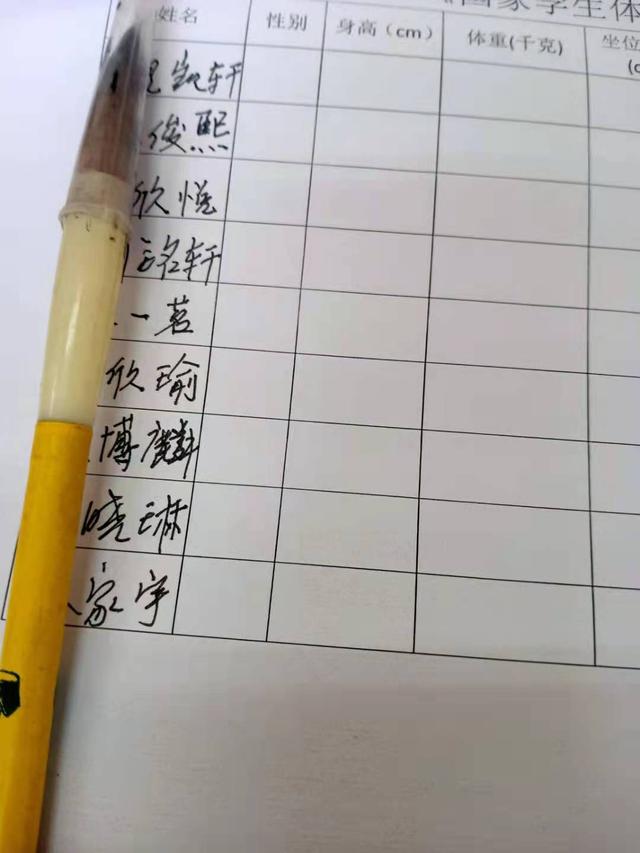 国家学生体
姓名 性别 身高（cm） 体重(千克) 坐位
凯轩
俊熙
欣悦
铭轩
一茗
欣瑜
博麟
晓琳
家宇